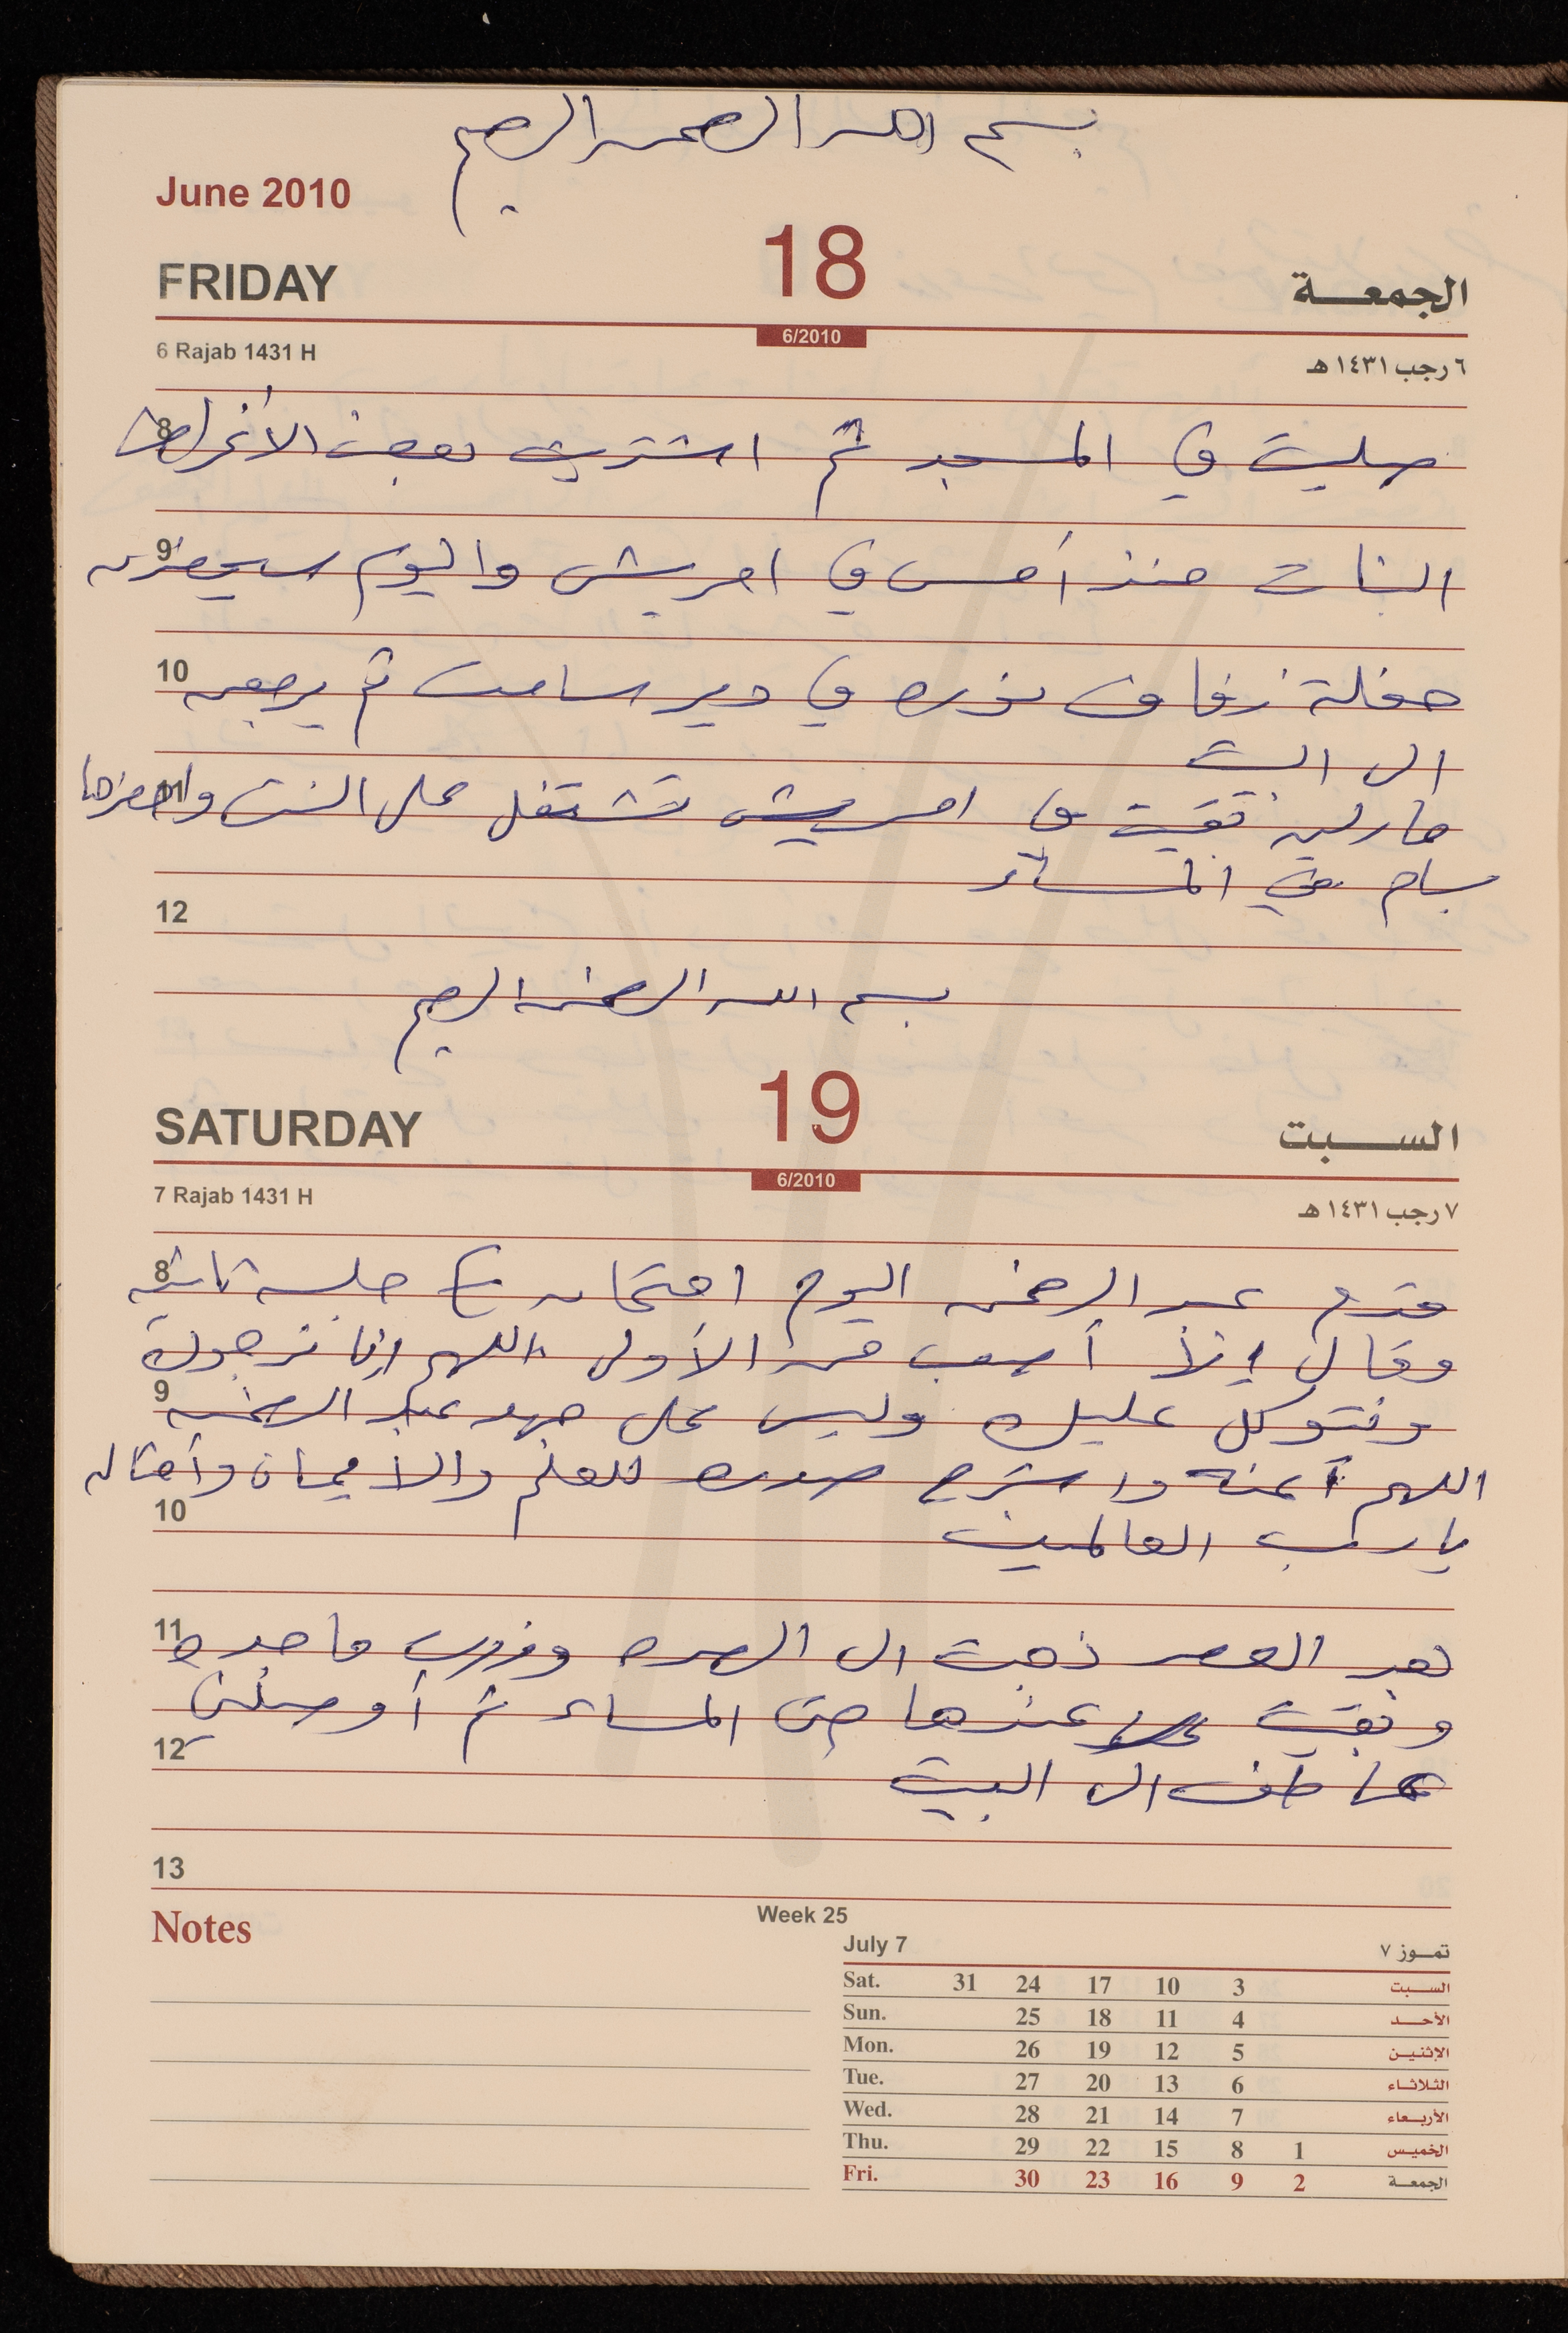 بسم الله الرحمن الرحيم
June 2010
FRIDAY 18 الجمعـــة
6/2010
6 Rajab 1431 H ٦ رجب ١٤٣١ هـ
8 صليت في المسجد ثم اشتريت بعض الأغراض
9 البنات منذ أمس في امريش واليوم سيحضرن
10 حفلة زفاف نوره في دير سامت ثم يرجعن
الى البيت
11 مارلين بقيت في امريش تشتغل على النت واحضرها
بسام في المساء
12
بسم الله الرحمن الرحيم
SATURDAY 19 الســـبت
6/2010
7 Rajab 1431 H ٧ رجب ١٤٣١ هـ
8 قدم عبد الرحمن اليوم امتحان جلسه ثانية
وقال إنه أصعب من الأول اللهم إنا نرجوك
9 ونتوكل عليك وليس على جهد عبد الرحمن
اللهم أعنه واشرح صدره للعلم والأيمان وأمثاله
10 يا رب العالمين
11 بعد العصر ذهبت الى وزرت ماجده
وبقيت عندها حتى المساء ثم أوصلني
12 عاطف الى البيت
13
Notes
Week 25
July 7 تمـــوز ٧
Sat. 31 24 17 10 3 الســـبت
Sun. 25 18 11 4 الأحـــد
Mon. 26 19 12 5 الإثنيـن
Tue. 27 20 13 6 الثلاثـاء
Wed. 28 21 14 7 الأربـعاء
Thu. 29 22 15 8 1 الخميـس
Fri. 30 23 16 9 2 الجمعـــة